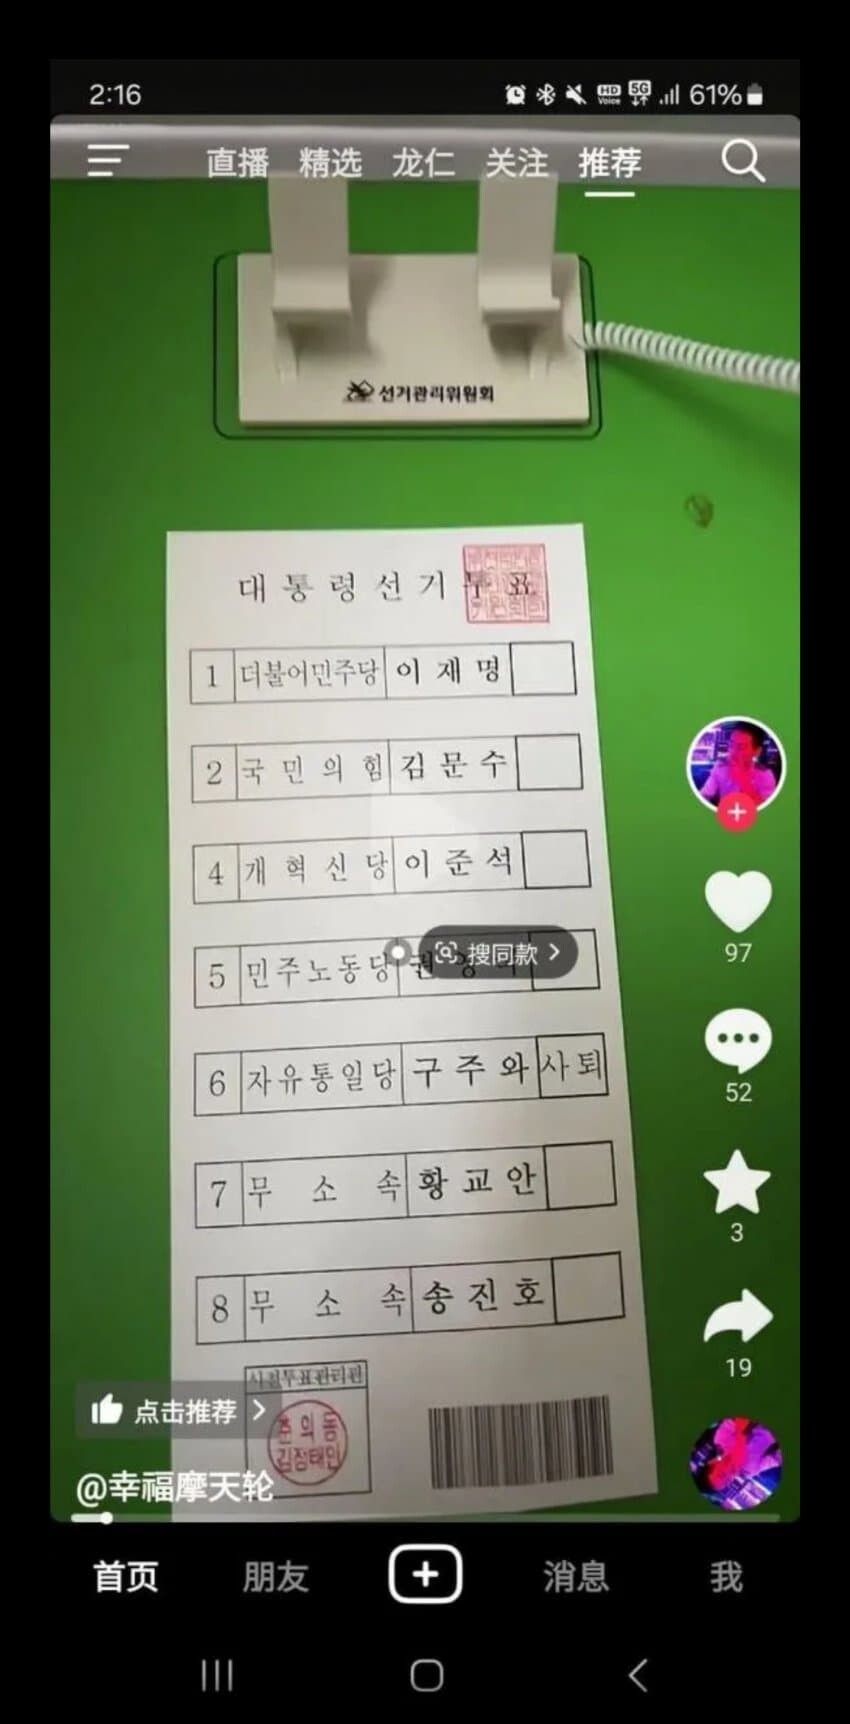 2:16
HD Voice 5G 61%
直播 精选 龙仁 关注 推荐
선거관리위원회
대통령선거투표
1 더불어민주당 이재명
2 국민의힘 김문수
4 개혁신당 이준석
5 민주노동당 권영
搜同款
6 자유통일당 구주와 사퇴
7 무소속 황교안
8 무소속 송진호
97
52
3
19
사전투표관리관
김점태인
点击推荐
@幸福摩天轮
首页 朋友 消息 我